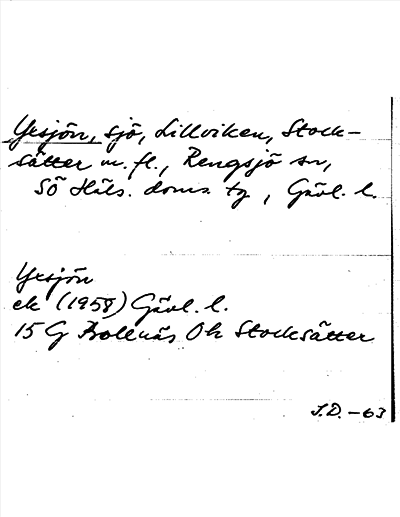 Yxsjön, sjö, Lillviken, Stock-
sätter m. fl., Rengsjö sn,
Sö Häls. doms. tg, Gävl. l.
Yxsjön
ek (1958) Gävl. l.
15 G Bollnäs Oh Stocksätter
J.D. -63